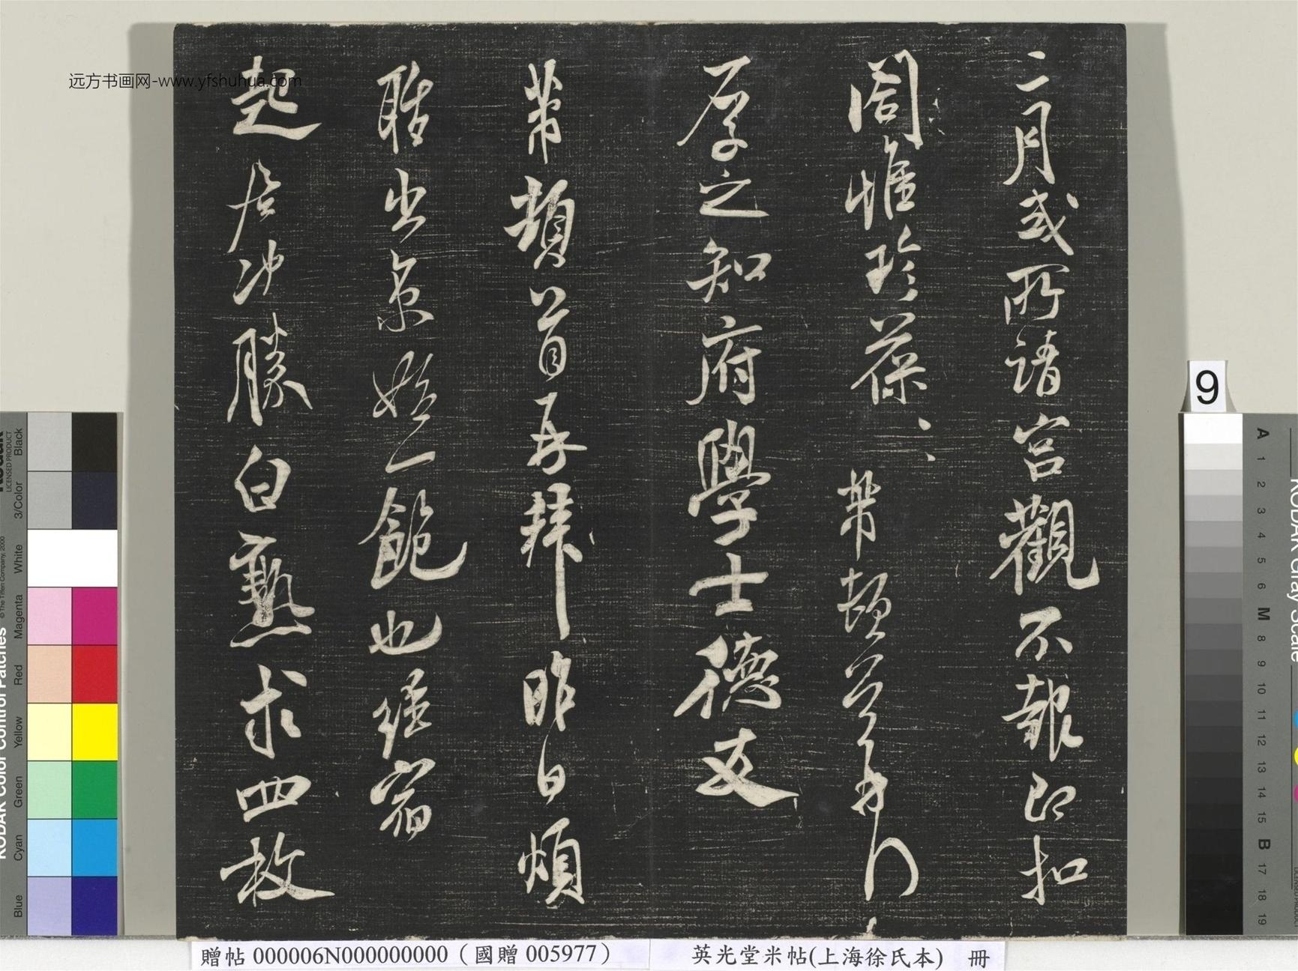 二月或所請宮觀不報即扣
閤惟珍葆、、芾頓首再拜
厚之知府學士德友
芾頓首再拜昨日煩
聒出京如一飽也經宿
起居冲勝白熟求四枚
远方书画网-www.yfshuhua.com
9
贈帖 000006N000000000（國贈 005977）
英光堂米帖(上海徐氏本) 冊
KODAK Color Control Patches
Black
3/Color
White
Magenta
Red
Yellow
Green
Cyan
Blue
KODAK Gray Scale
A 1 2 3 4 5 6 M 8 9 10 11 12 13 14 15 B 17 18 19